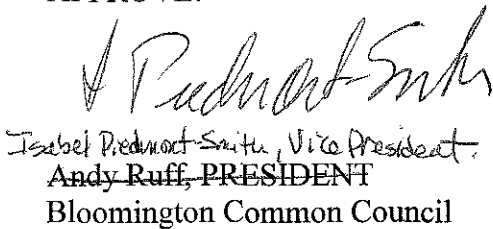 I Piedmont-Smith
Isabel Piedmont-Smith, Vice President.
Andy Ruff, PRESIDENT
Bloomington Common Council